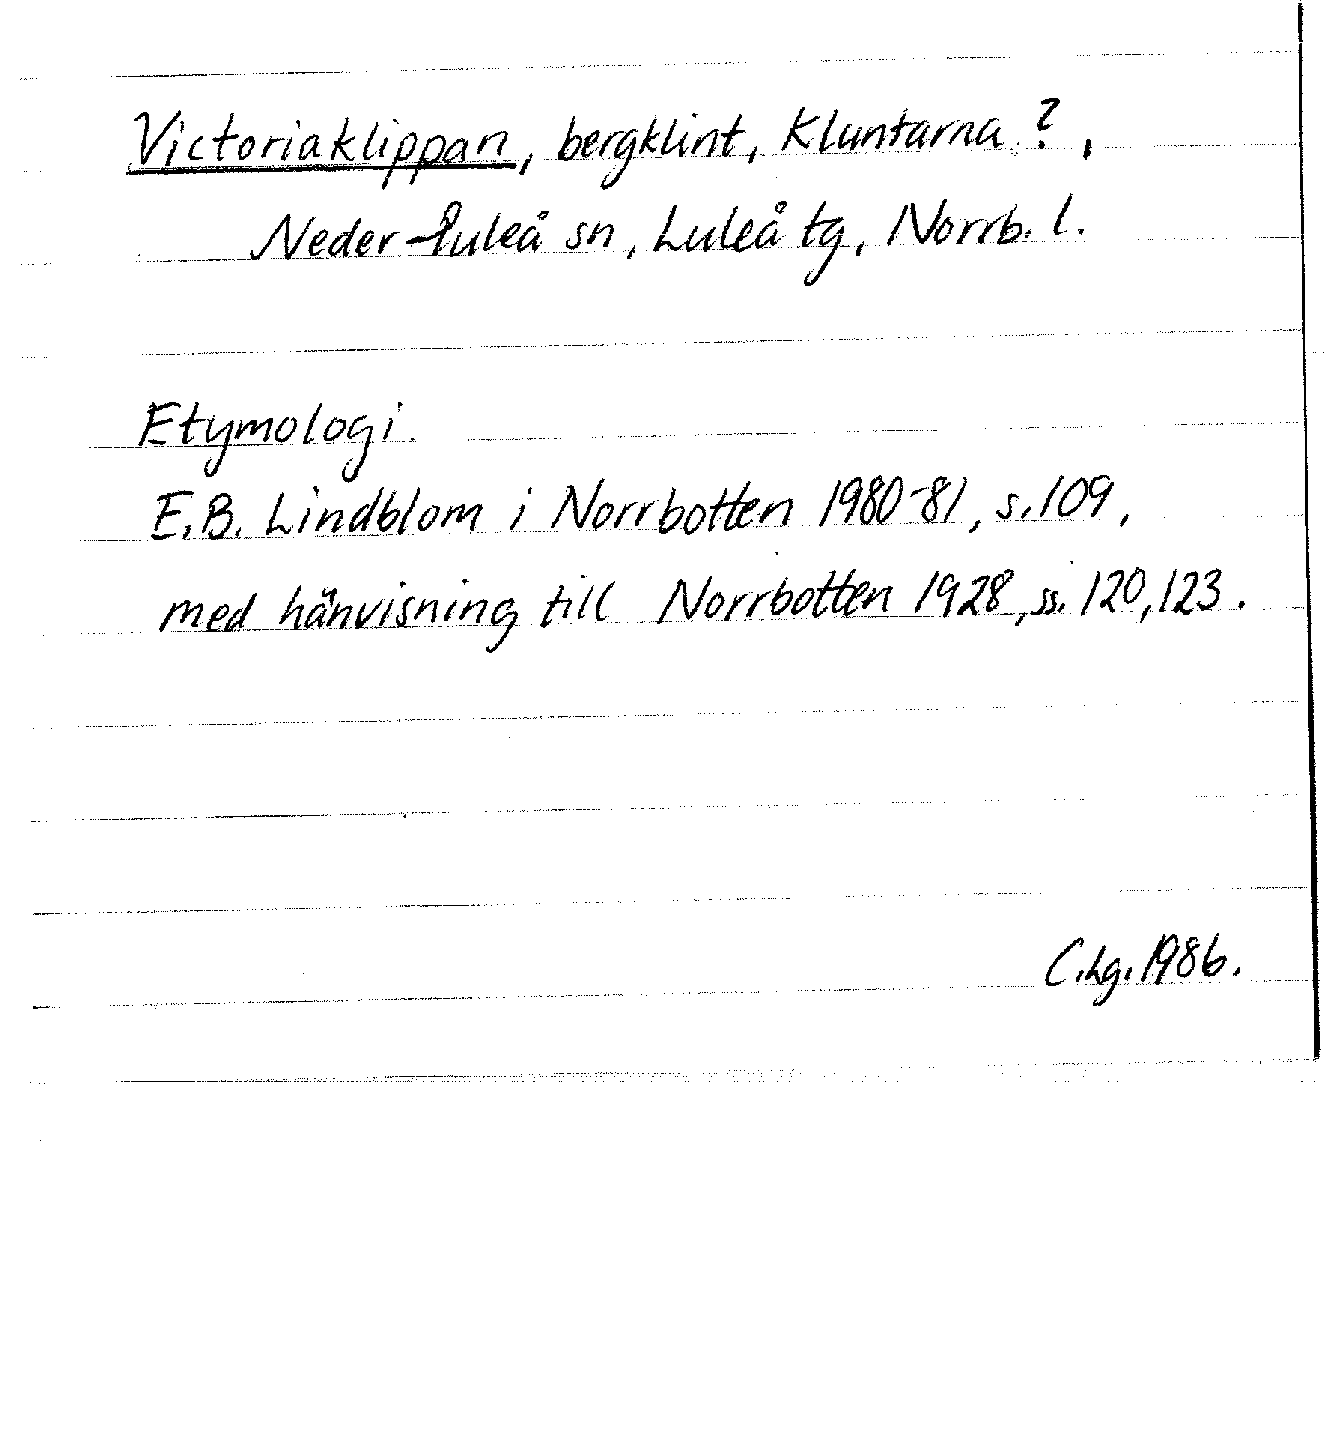 Victoriaklippan, bergklint, Kluntarna?,
Neder-Luleå sn, Luleå tg, Norrb. l.
Etymologi.
E.B. Lindblom i Norrbotten 1980-81, s.109,
med hänvisning till Norrbotten 1928, ss. 120,123.
C.Lg. 1986.